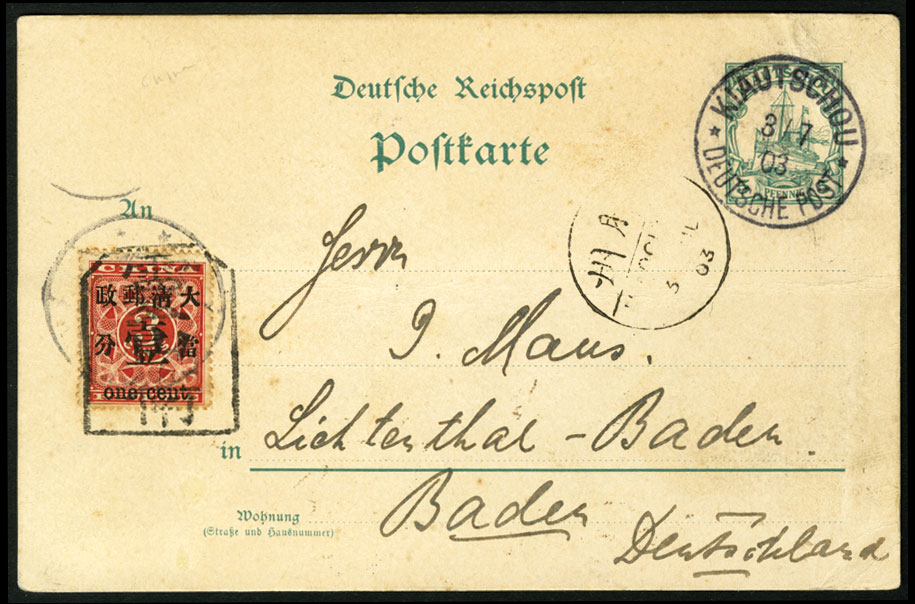 Deutsche Reichspost
Postkarte
KIAUTSCHOU
3/7
03
* DEUTSCHE POST *
PFENNIG
An
Herrn
CHINA
政郵清大
分壹當
one cent.
03
J. Maus.
in Lichtenthal – Baden
Baden
Wohnung
(Straße und Hausnummer)
Deutschland